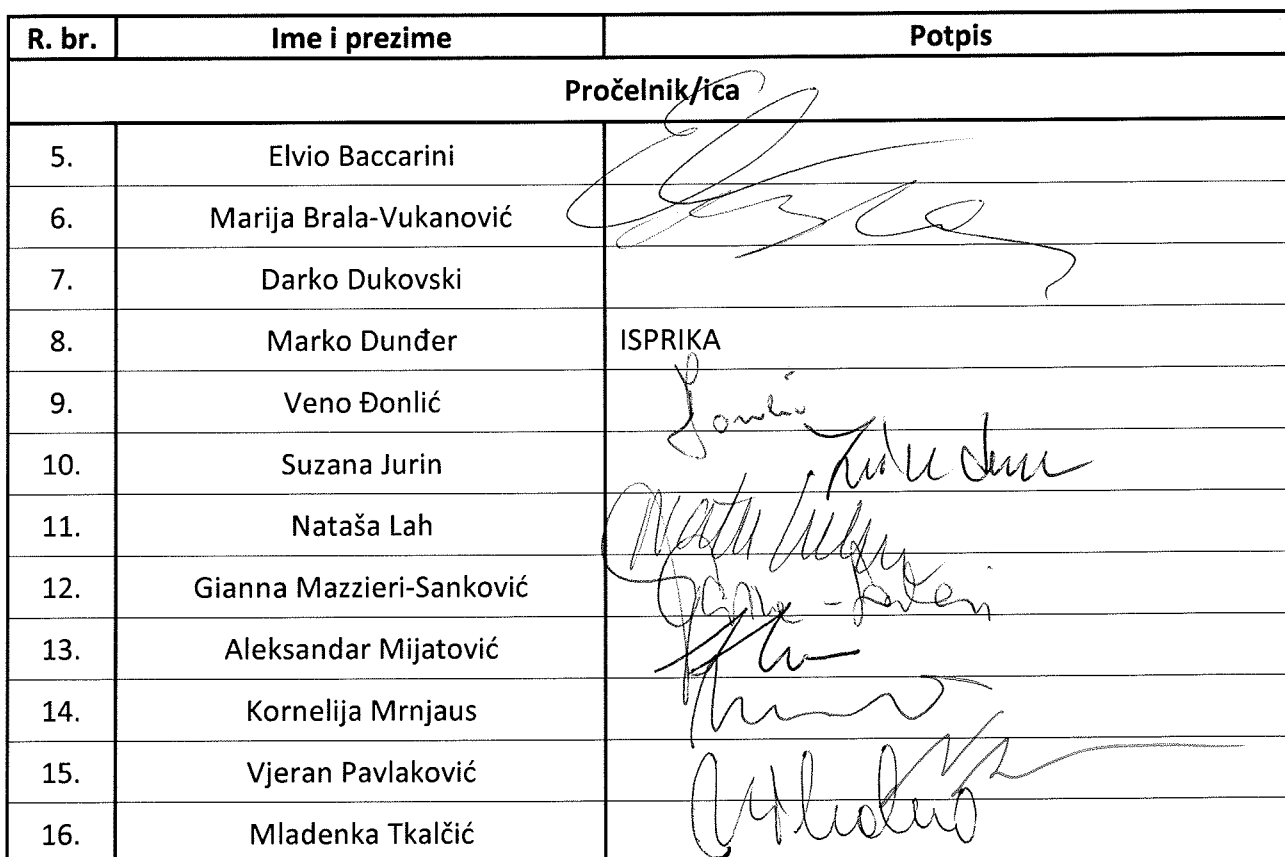 R. br. Ime i prezime Potpis
Pročelnik/ica
5. Elvio Baccarini
6. Marija Brala-Vukanović
7. Darko Dukovski
8. Marko Dunđer ISPRIKA
9. Veno Đonlić
10. Suzana Jurin
11. Nataša Lah
12. Gianna Mazzieri-Sanković
13. Aleksandar Mijatović
14. Kornelija Mrnjaus
15. Vjeran Pavlaković
16. Mladenka Tkalčić